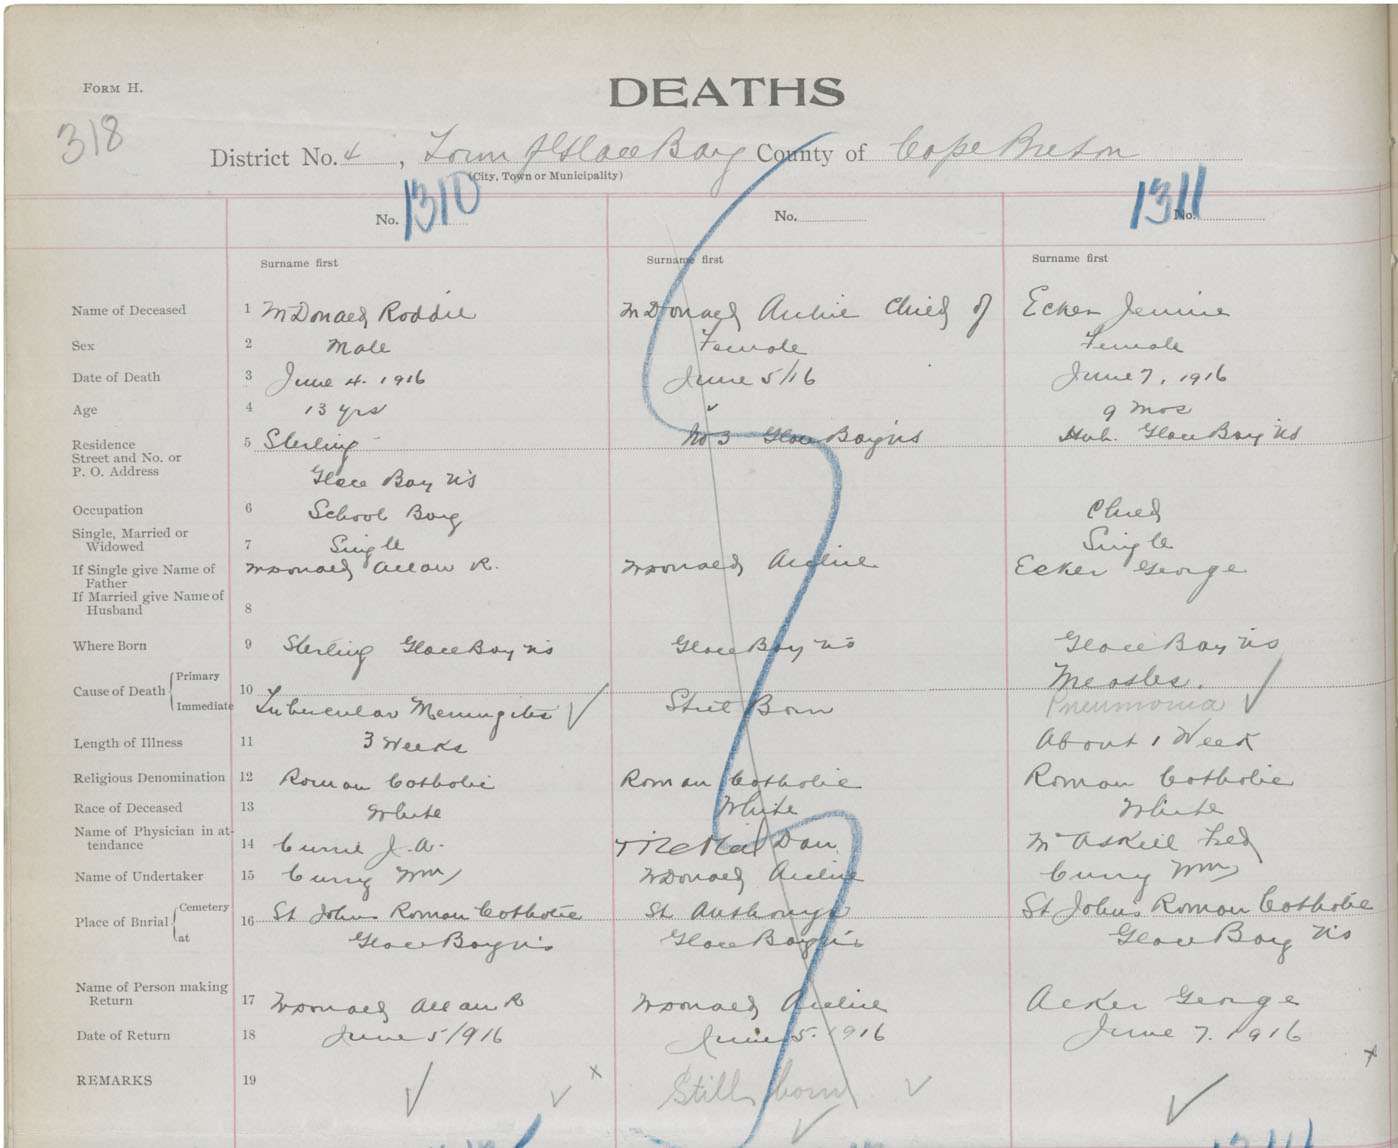 FORM H.
DEATHS
318
District No. 4, Town of Glace Bay County of Cape Breton
(City, Town or Municipality)
No. 1310 No. 1311 No.
Surname first Surname first Surname first
Name of Deceased 1 McDonald Roddie McDonald Archie Child of Ecker Jennie
Sex 2 Male Female Female
Date of Death 3 June 4. 1916 June 5/16 June 7, 1916
Age 4 13 yrs 9 mos
Residence 5 Sterling No 3 Glace Bay NS Hub. Glace Bay NS
Street and No. or
P. O. Address Glace Bay NS
Occupation 6 School Boy Child
Single, Married or
Widowed 7 Single Single
If Single give Name of McDonald Allan R. McDonald Archie Ecker George
Father
If Married give Name of
Husband 8
Where Born 9 Sterling Glace Bay NS Glace Bay NS Glace Bay NS
Cause of Death Primary 10 Measles.
Immediate Tubercular Meningites Still Born Pneumonia
Length of Illness 11 3 Weeks About 1 Week
Religious Denomination 12 Roman Catholic Roman Catholic Roman Catholic
Race of Deceased 13 White White White
Name of Physician in at-
tendance 14 Currie J. A. McNeil Dan Mc Askill Fred
Name of Undertaker 15 Curry Wm McDonald Archie Curry Wm
Place of Burial Cemetery 16 St Johns Roman Catholic St Anthonys St Johns Roman Catholic
at Glace Bay NS Glace Bay NS Glace Bay NS
Name of Person making
Return 17 McDonald Allan R McDonald Archie Acker George
Date of Return 18 June 5/916 June 5. 1916 June 7. 1916
REMARKS 19 Still born